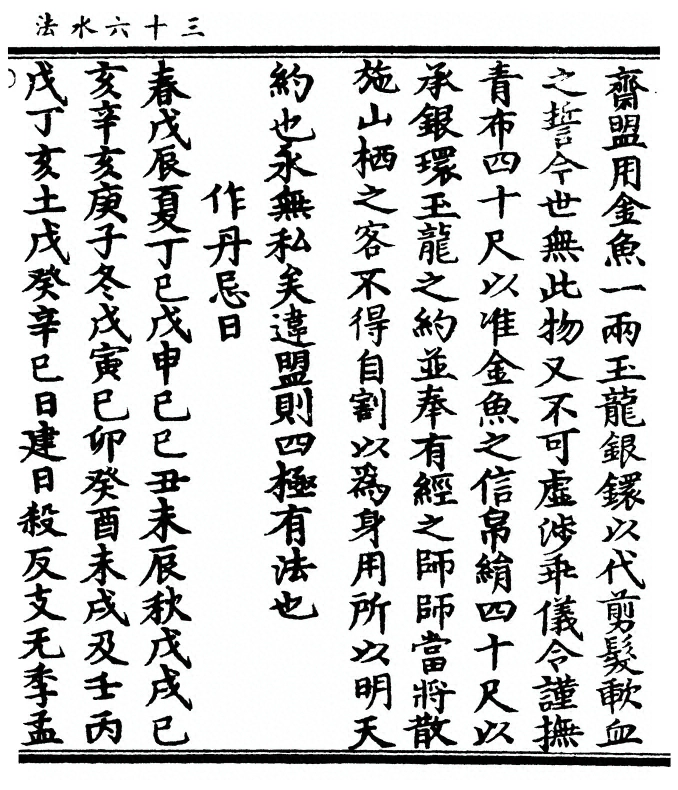 三十六水法
齋盟用金魚一兩玉龍銀鐶以代剪髮歃血
之誓今世無此物又不可虛涉乖儀令謹撫
青布四十尺以准金魚之信帛絹四十尺以
承銀環玉龍之約並奉有經之師師當將散
施山栖之客不得自割以爲身用所以明天
約也永無私矣違盟則四極有法也
作丹忌日
春戊辰夏丁巳戊申巳巳丑未辰秋戊戌巳
亥辛亥庚子冬戊寅巳卯癸酉未戌及壬丙
戌丁亥土戊癸辛巳日建日殺反支无季孟